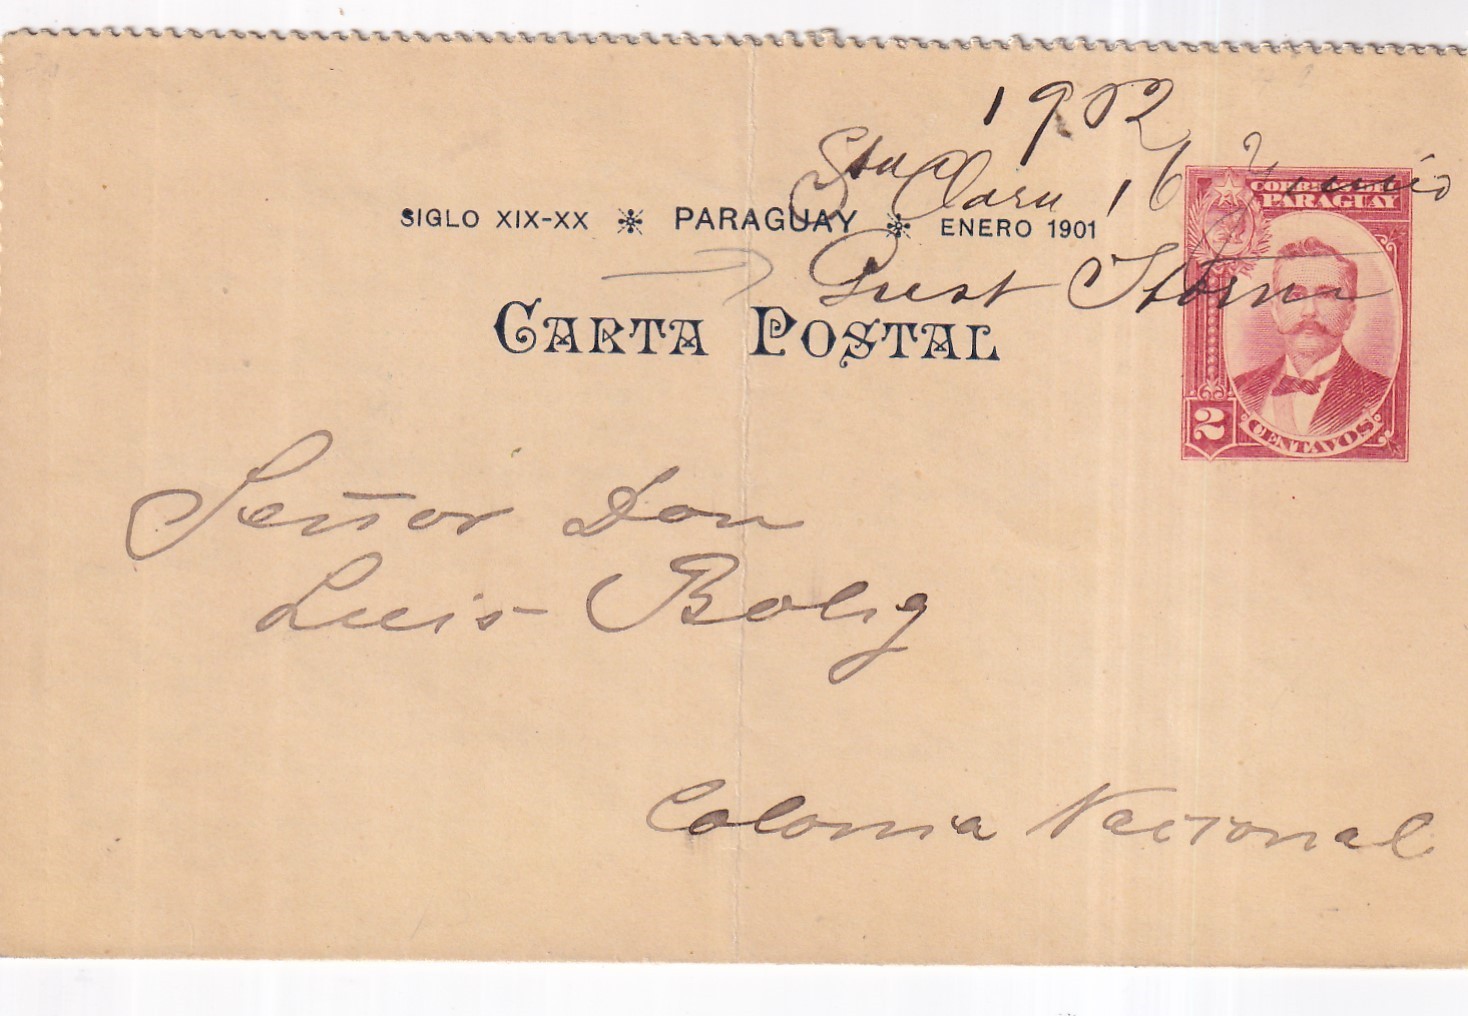 1902
Sta Clara 16 Junio
SIGLO XIX-XX PARAGUAY ENERO 1901
CORREOS DEL
PARAGUAY
CARTA POSTAL
2
CENTAVOS
Señor Don
Luis Bolig
Colonia Nacional